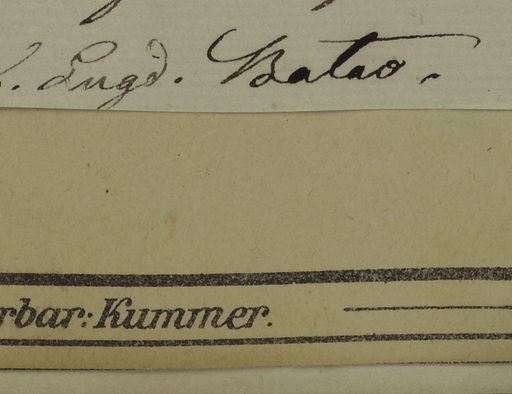 . Lugd. Batav.
rbar: Kummer.